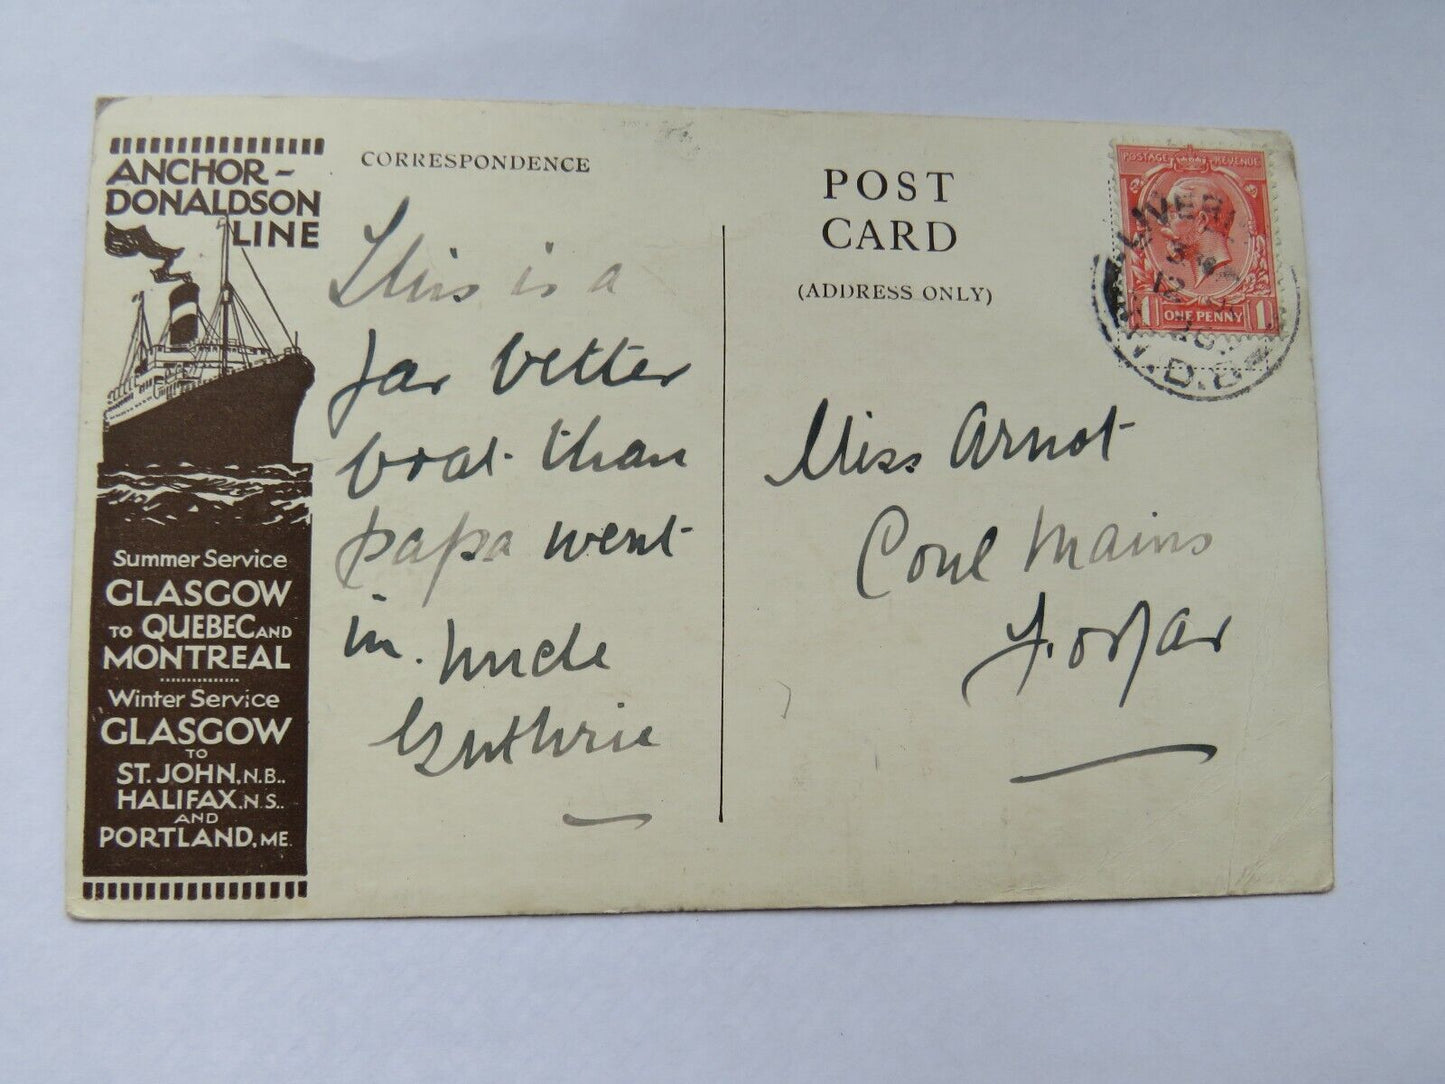 ANCHOR-
DONALDSON
LINE
Summer Service
GLASGOW
TO QUEBEC AND
MONTREAL
Winter Service
GLASGOW
TO
ST. JOHN, N.B.,
HALIFAX, N.S.,
AND
PORTLAND, ME.
CORRESPONDENCE
This is a
far better
boat than
papa went
in. Uncle
Guthrie
POST
CARD
(ADDRESS ONLY)
POSTAGE REVENUE
1 ONE PENNY 1
Miss Arnot
Coul Mains
Forfar